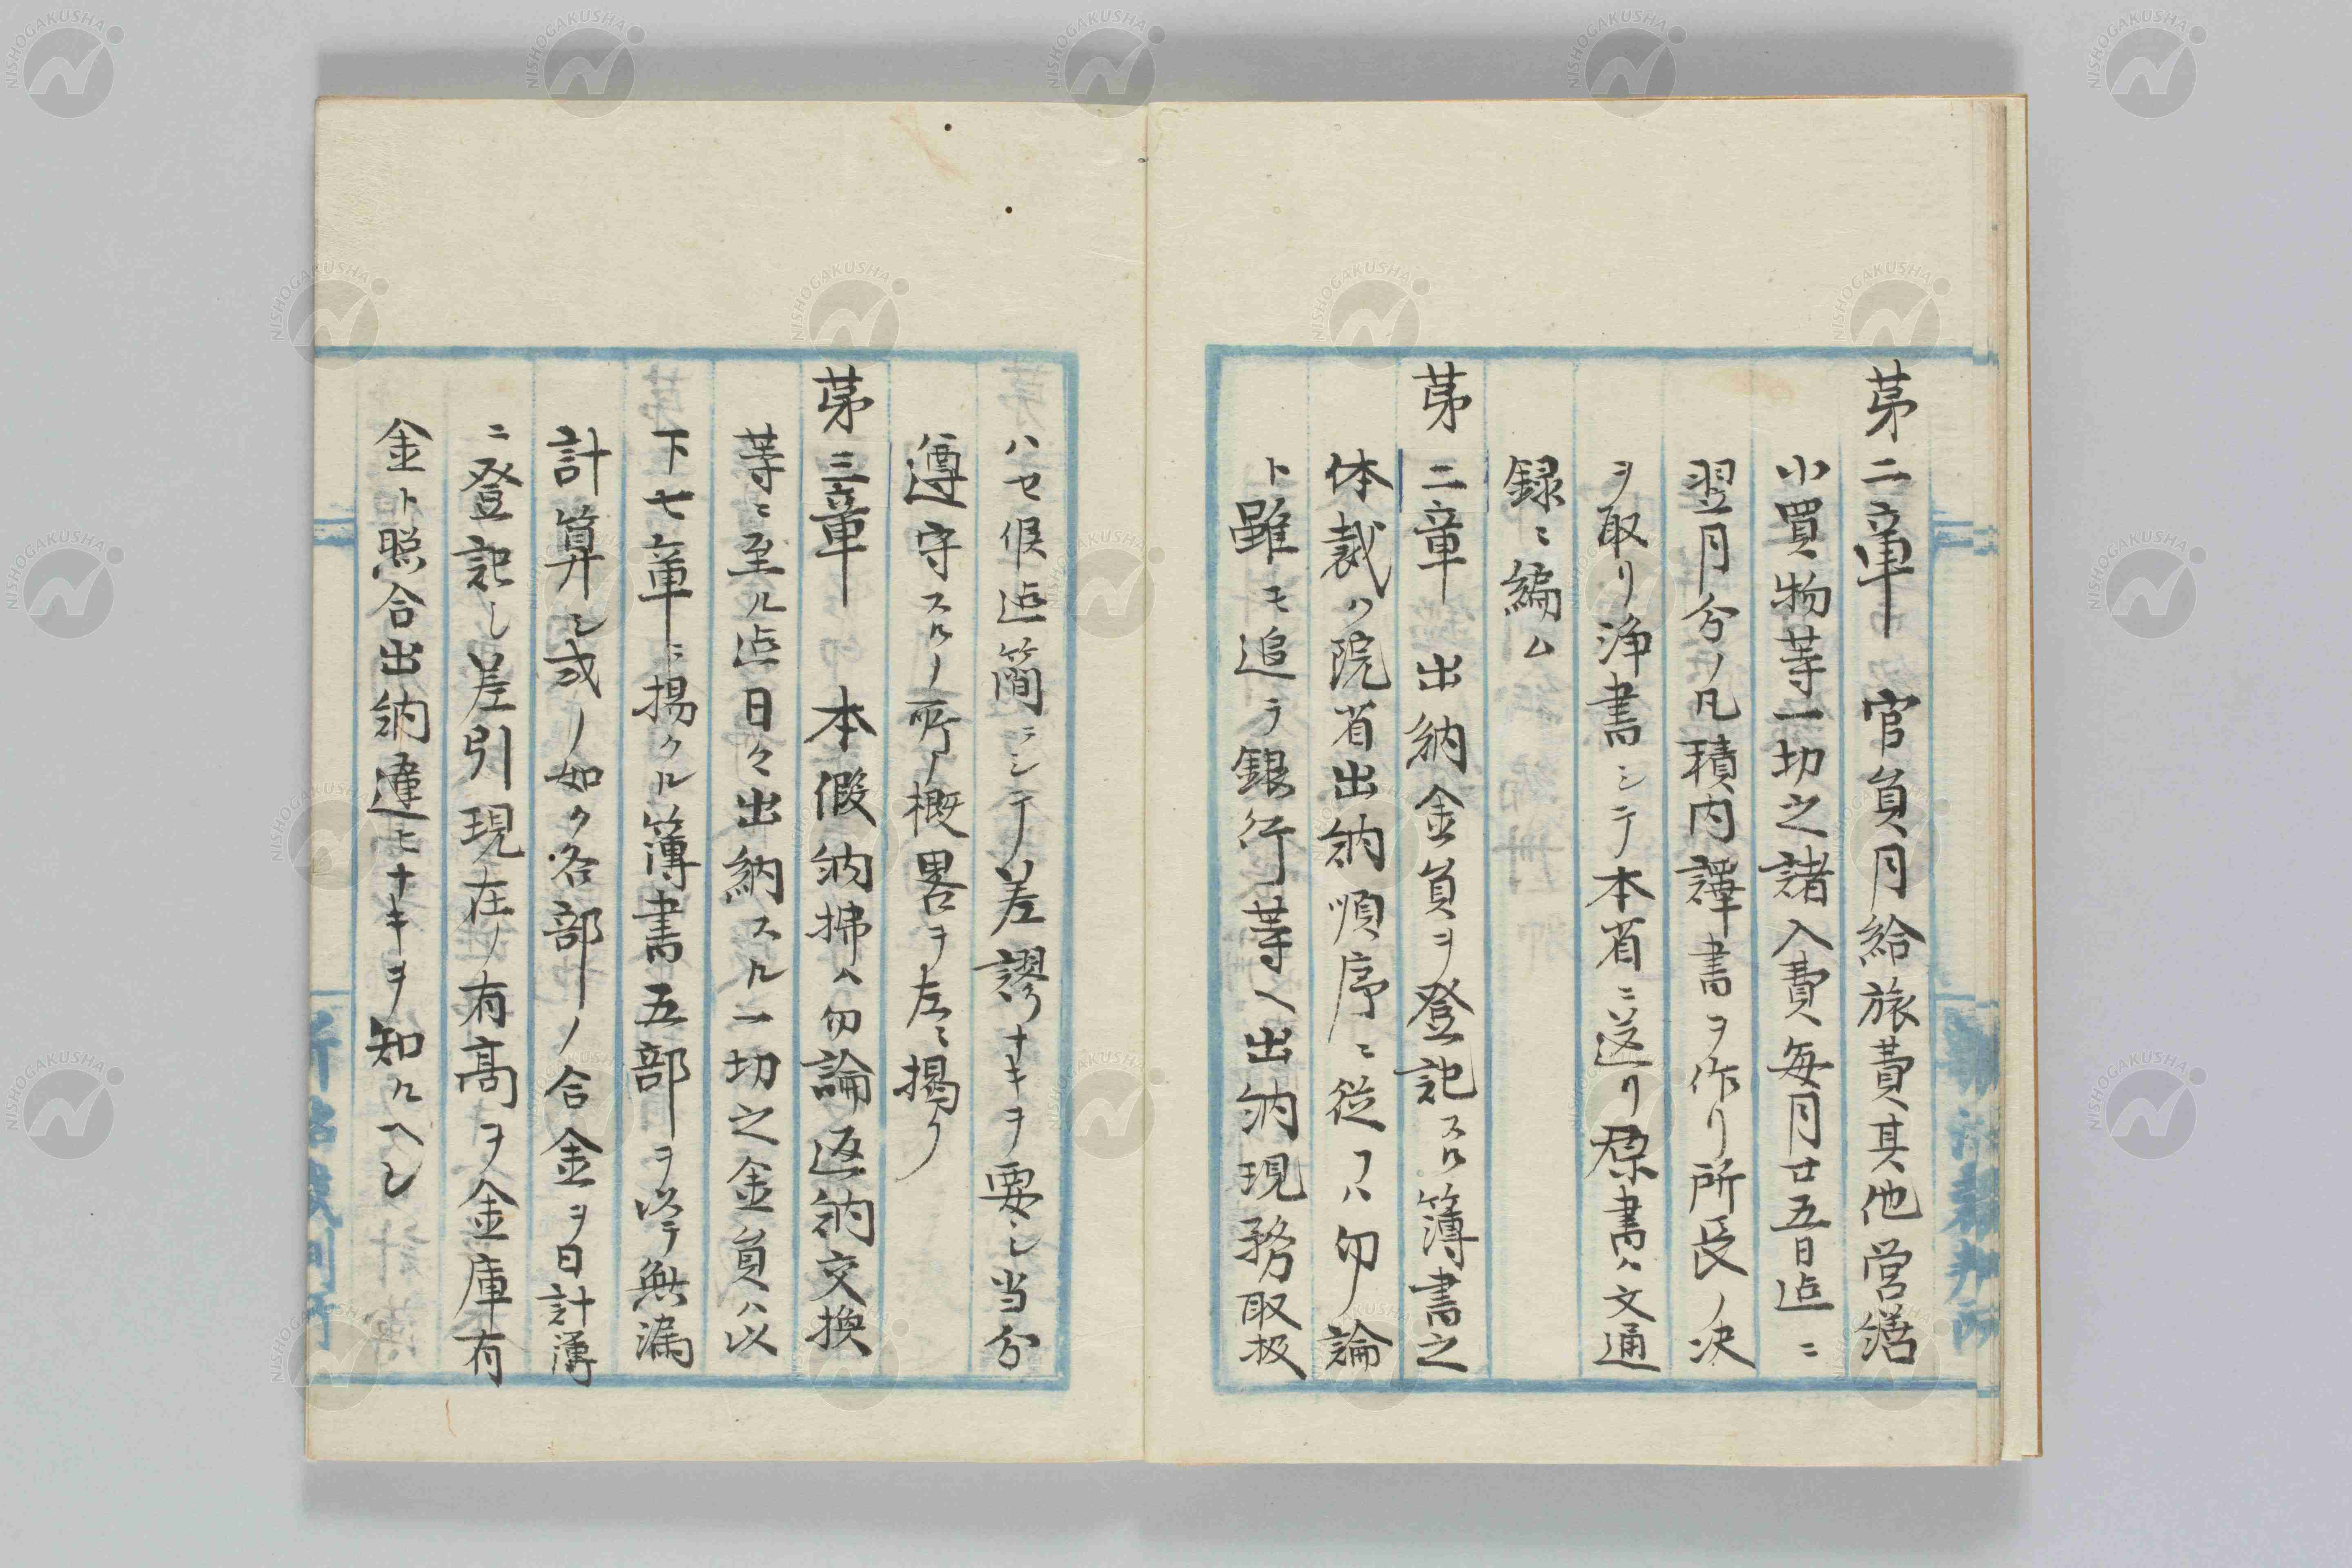 第二章　官員月給旅費其他営繕
小買物等一切之諸入費毎月廿五日迠ニ
翌月分ノ凡積内譯書ヲ作リ所長ノ決
ヲ取リ浄書シテ本省ニ送リ原書ハ文通
録ニ編ム
第二章　出納金員ヲ登記スル簿書之
体裁ハ院省出納順序ニ従フハ勿論
ト雖モ追テ銀行等ヘ出納現務取扱
ハセ候迠簡ニシテ差謬ナキヲ要シ当分
遵守スルノ所ノ概畧ヲ左ニ掲ク
第三章　本假納拂ハ勿論返納交換
等ニ至ル迠日々出納スル一切之金員ハ以
下七章ニ掲クル簿書五部ヲ以テ無漏
計算シ或ノ如ク各部ノ合金ヲ日計簿
ニ登記し差引現在ノ有高ヲ金庫有
金ト照合出納違ヒナキヲ知ルヘし
NISHOGAKUSHA